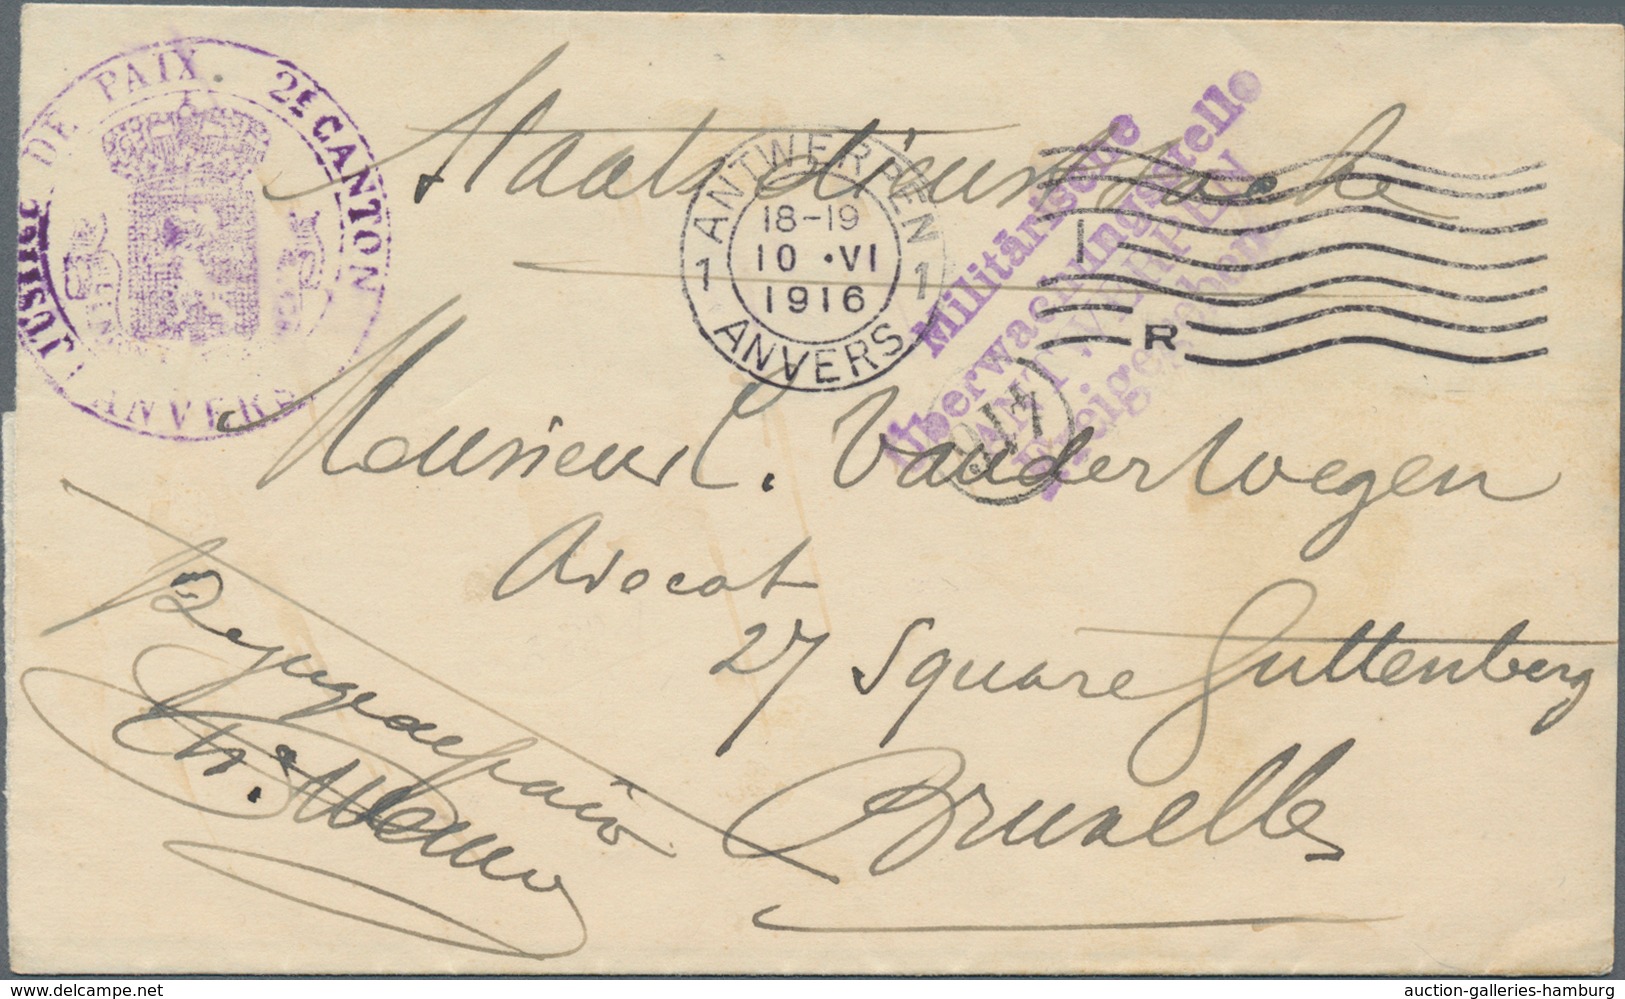 JUSTICE DE PAIX. 2E CANTON
ANVERS
Staatsdienstsache
ANTWERPEN
1 18-19 1
10 •VI
1916
ANVERS
R
Militärische
Überwachungsstelle
ANTWERPEN
Freigegeben
Monsieur C. Vanderwegen
Avocat
27 Square Guttenberg
Bruxelles
Le juge de paix
www.delcampe.net
auction-galleries-hamburg